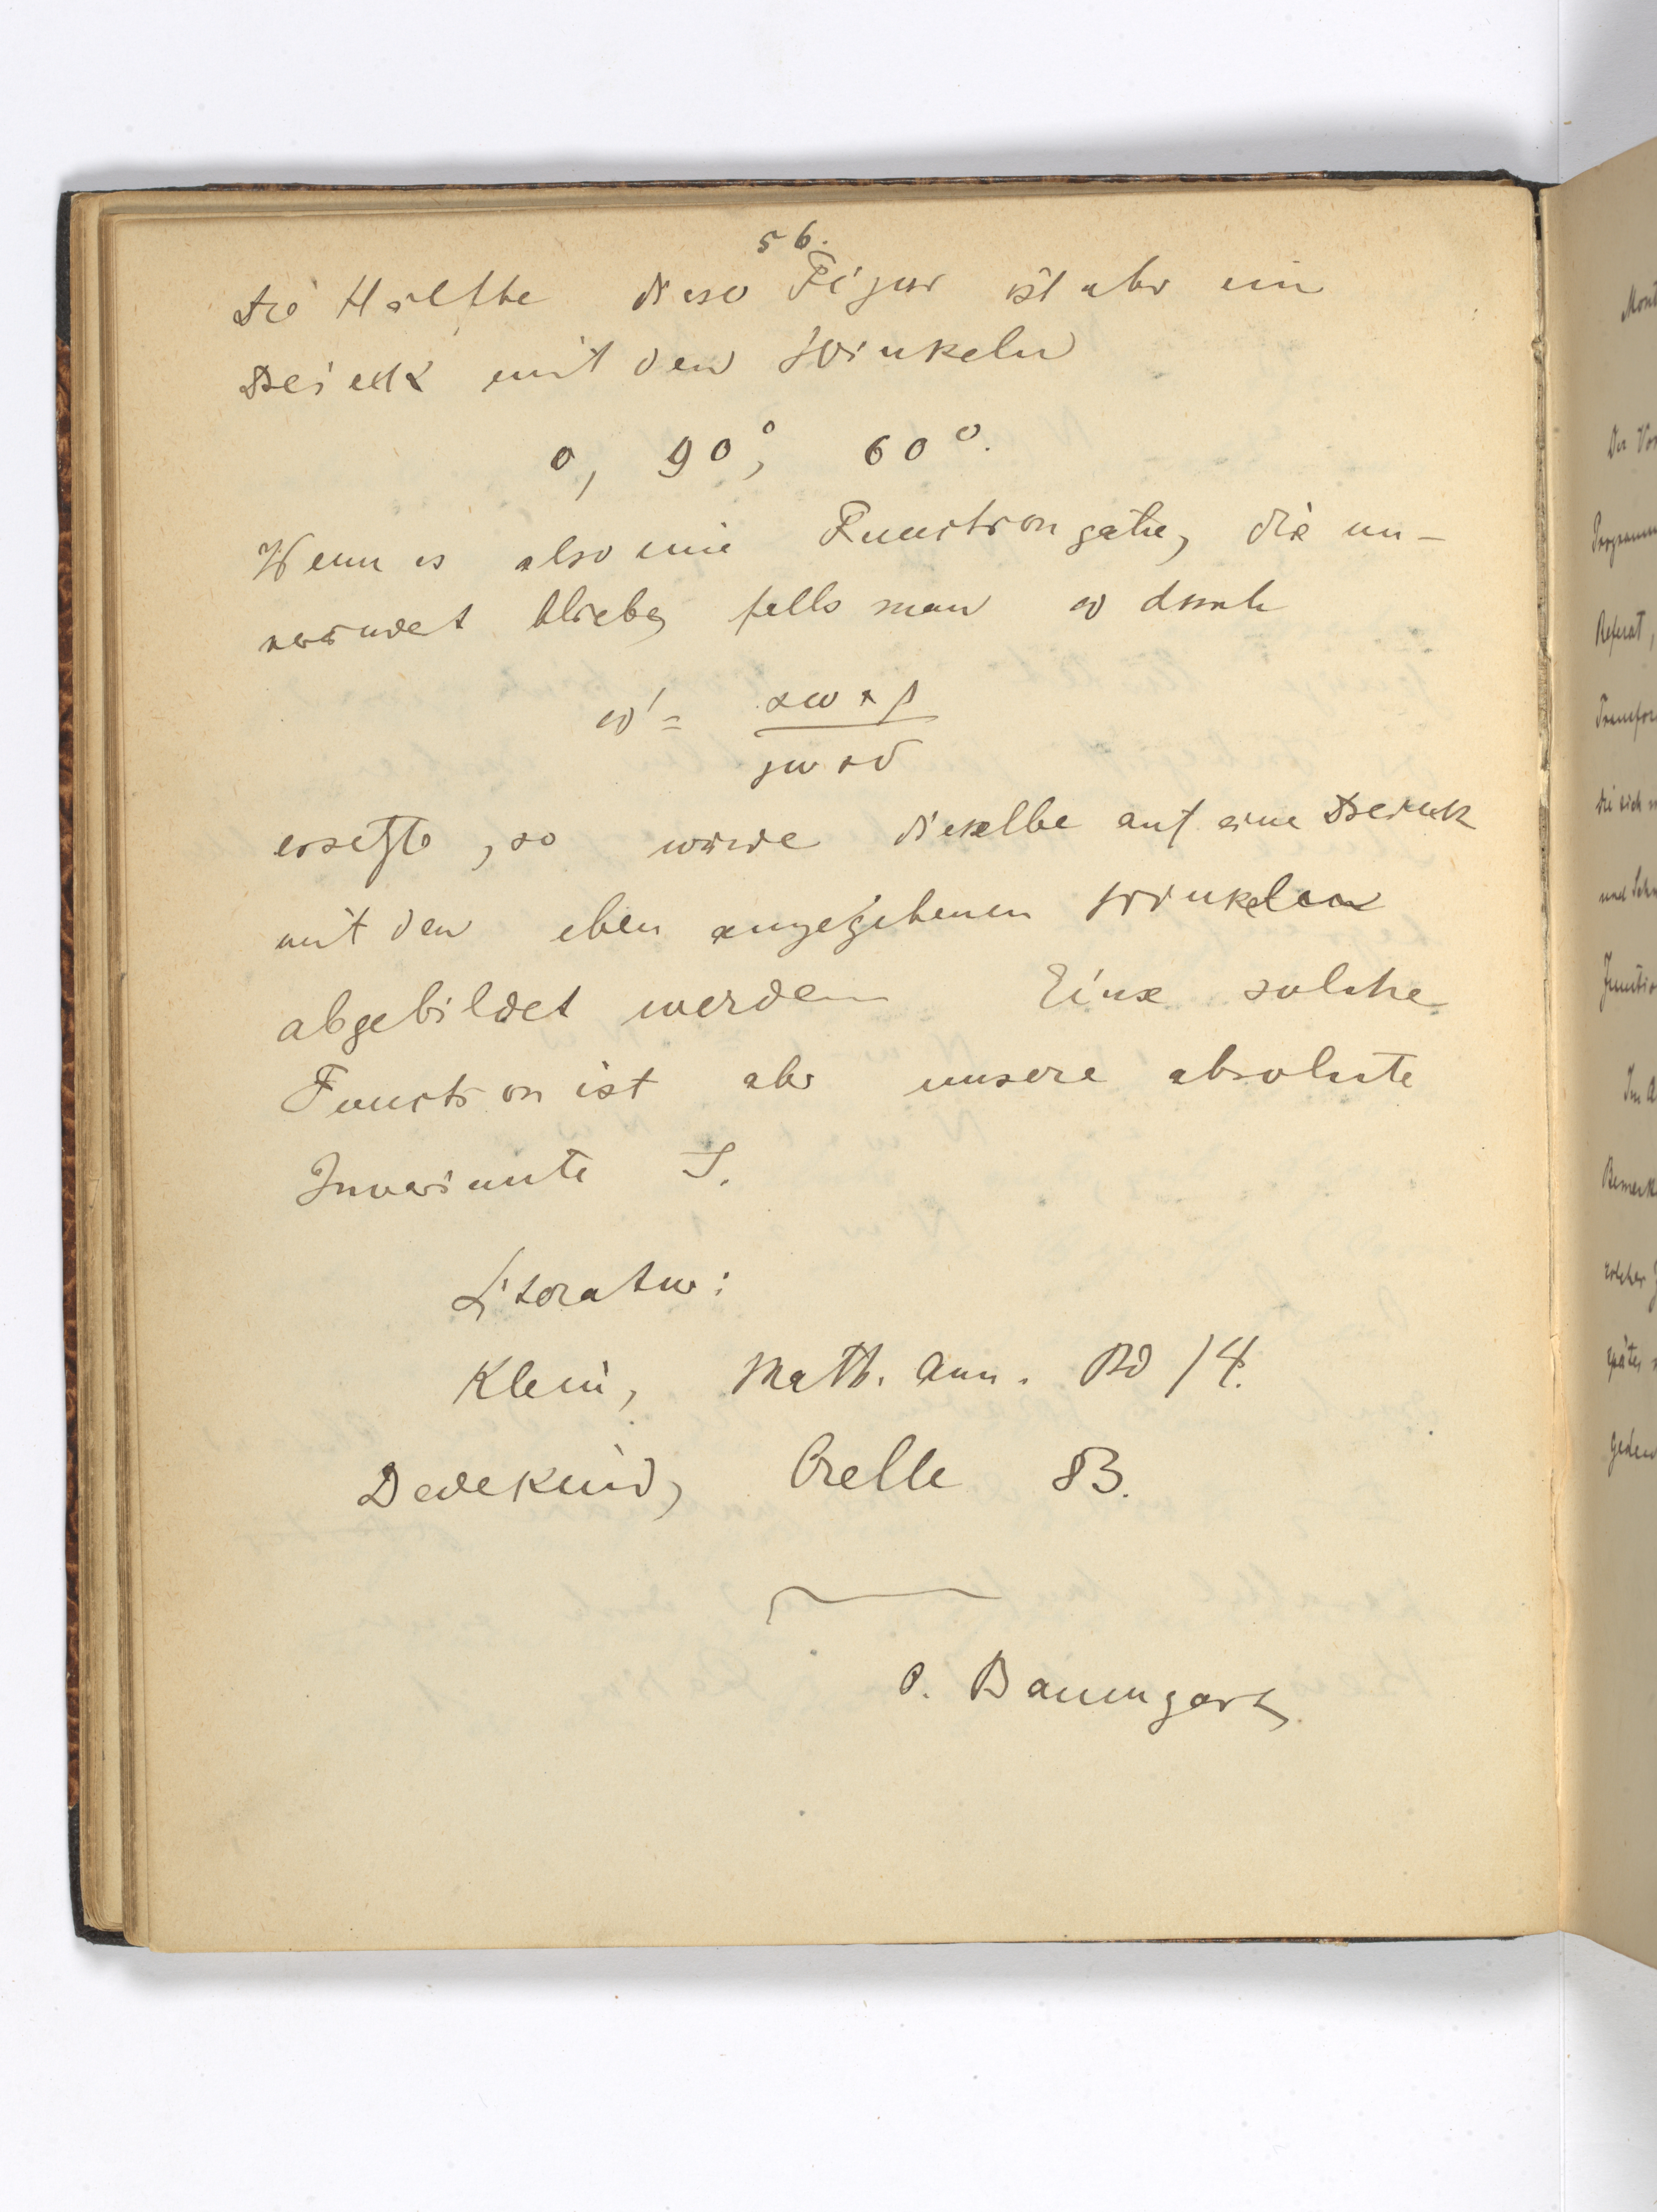 56.
Die Hälfte dieser Figur ist aber ein
Dreieck mit den Winkeln
0, 90°, 60°.
Wenn es also eine Function gäbe, die un-
verändet bliebe, falls man ω durch
ω' = αω + β / γω + δ
ersetzte, so würde dieselbe auf eine Dreieck
mit den eben angegebenen Winkeln
abgebildet werden Eine solche
Function ist aber unsere absolute
Invariante J.
Literatur:
Klein, Math. Ann. Bd 14.
Dedekind, Crelle 83.
O. Baumgart.
Der
Referat,
die sich
und
Im
später